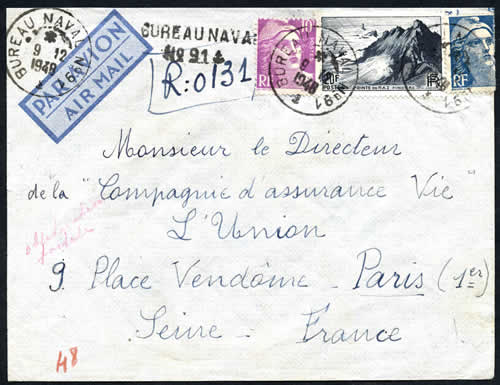 BUREAU NAVAL
9 12
1948
Nº 91
PAR AVION
AIR MAIL
BUREAU NAVAL
Nº 91
R: 0131
10F
RF
20F
POSTES
POINTE DU RAZ
RF
BUREAU NAVAL
9
1948
Nº 91
Monsieur le Directeur
de la "Compagnie d'assurance Vie"
L'Union
9 Place Vendôme - Paris (1er)
Seine - France
48